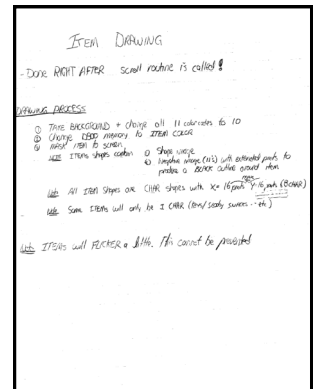 ITEM DRAWING
- Done RIGHT AFTER scroll routine is called!
DRAWING PROCESS
① TAKE BACKGROUND + change all 11 color codes to 10
② Change D800 memory to ITEM COLOR
③ MASK ITEM to screen
Note ITEMs shapes contain ① Shape image
② negative image (11's) with extended parts to
produce a BLACK outline around item
Note All ITEM Shapes are CHAR shapes with X=16 Y=16 (8 CHAR)
Note Some ITEMs will only be 1 CHAR
Note ITEMs will FLICKER a little. This cannot be prevented